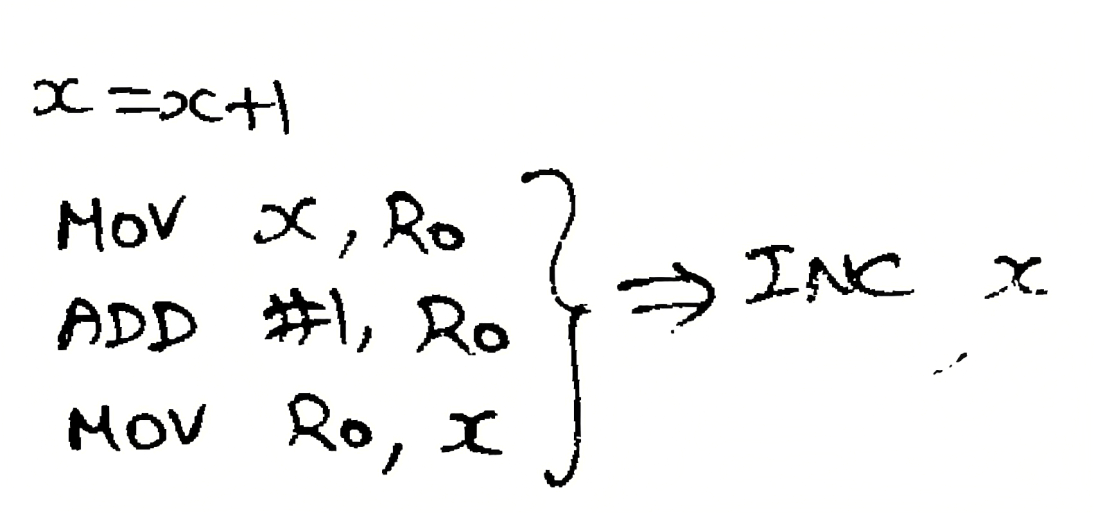 x=x+1
MOV x, R0
ADD #1, R0
MOV R0, x
⇒ INC x